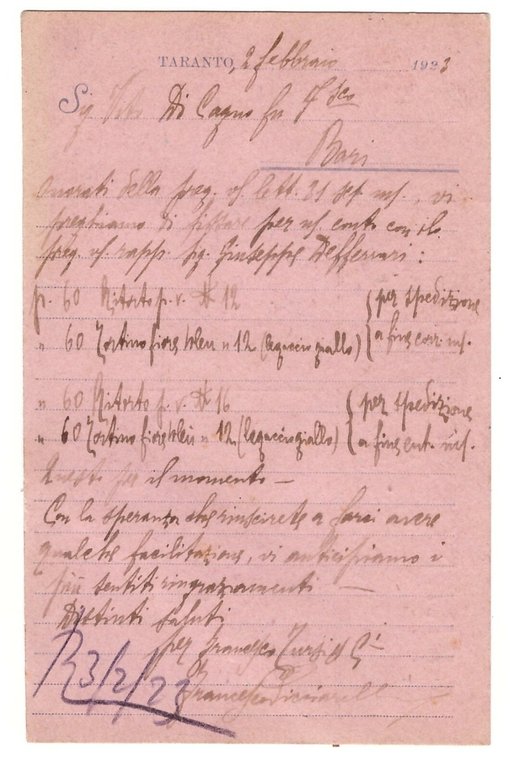 TARANTO, 2 febbraio 1923
Sig. Vito Di Cagno fu F.sco
Bari
Onorati della preg. vs/ lett. 31 vi
preghiamo di fissare per ns/ conto con lo
preg. vs. rapp. sig. Giuseppe Defferrari :
p. 60 Ritorto p. v. # 12 per spedizione
" 60 Zortino fiore bleu n 12 (legaccio giallo) a fine corr.
" 60 Ritorto p. v. # 16 per spedizione
" 60 Zortino fiore bleu n 12 (legaccio giallo) a fine
Questo per il momento —
Con la speranza che riuscirete a farci avere
qualche facilitazione, vi anticipiamo i
più sentiti ringraziamenti —
Distinti saluti
per Francesco Turi & C.i
R 3/2/23 Francesco